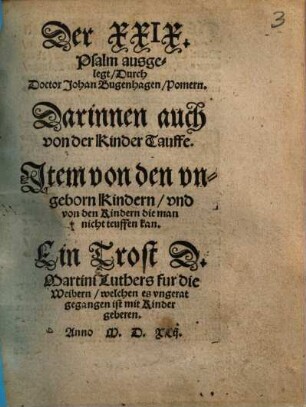 3
Der XXIX.
Psalm ausge-
legt/Durch
Doctor Johan Bugenhagen/Pomern.
Darinnen auch
von der Kinder Tauffe.
Item von den vn-
geborn Kindern/vnd
von den Kindern die man
nicht teuffen kan.
Ein Trost D.
Martini Luthers fur die
Weibern/welchen es vngerat
gegangen ist mit Kinder
geberen.
Anno M. D. Xlij.